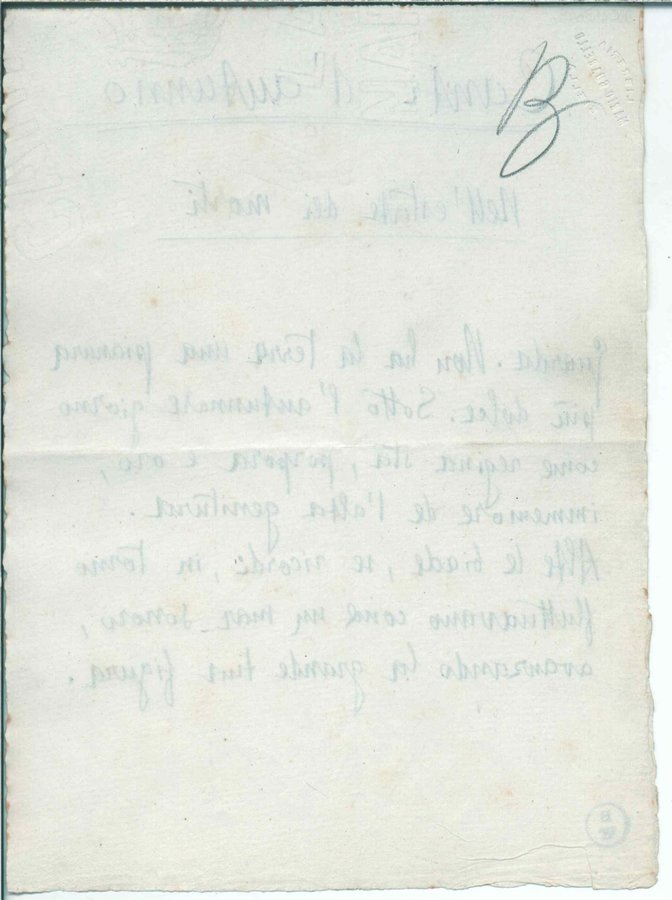 B
d'autunno
Nell'estate dei morti
Guarda. Non ha la terra una pianura
più dolce. Sotto l'autunnale giorno
come regina sta, porpora e oro,
immemore de l'alta genitura.
Alte le biade, se ricordi, in torno
fluttuavano come un mar sonoro,
avanzando la grande tua figura.